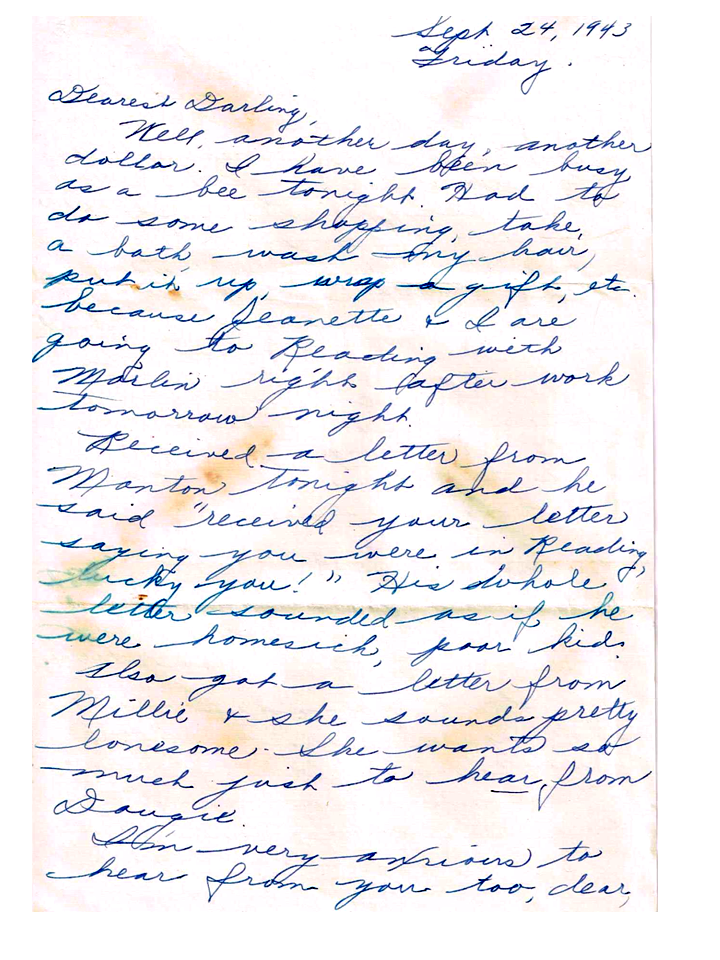 Sept 24, 1943
Friday.
Dearest Darling,
Well, another day, another
dollar. I have been busy
as a bee tonight. Had to
do some shopping, take,
a bath, wash my hair,
put it up, wrap a gift, etc.
because Jeanette & I are
going to Reading with
Marlin right after work
tomorrow night.
Received a letter from
Manton tonight and he
said "received your letter
saying you were in Reading,
lucky you!" His whole
letter sounded as if he
were homesick, poor kid.
Also got a letter from
Millie & she sounds pretty
lonesome. She wants so
much just to hear from
Dougie.
I'm very anxious to
hear from you too, dear,